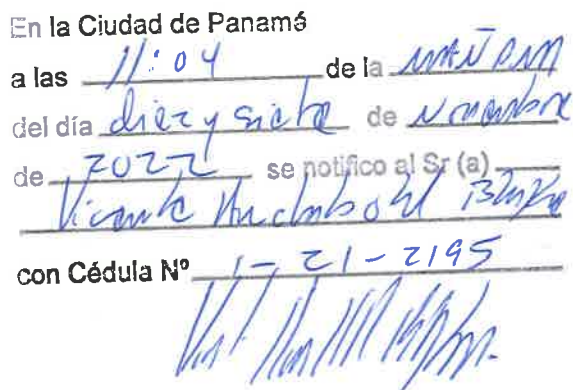 En la Ciudad de Panamá
a las 11:04 de la MAÑANA
del día diez y siete de Noviembre
de 2022 se notifico al Sr (a)
Vicente Archibold Blake
con Cédula Nº 1-21-2195